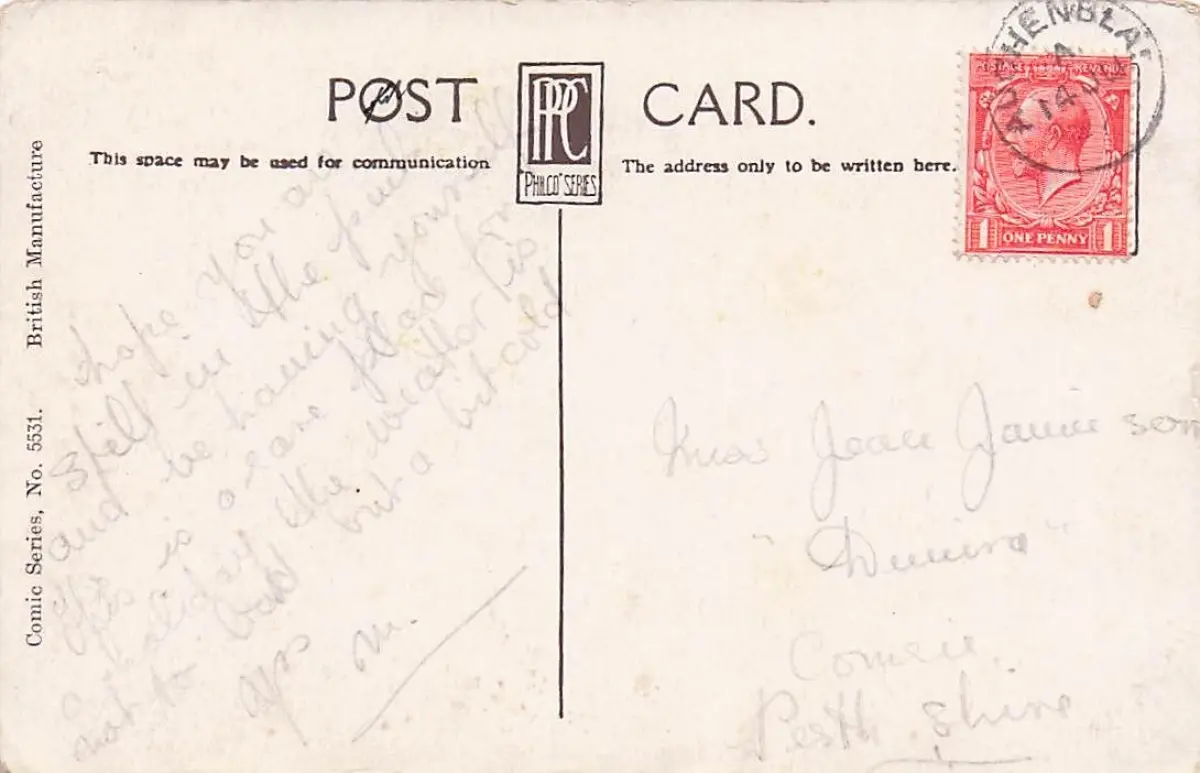 POST CARD.
PPC
"PHILCO" SERIES
This space may be used for communication
The address only to be written here.
British Manufacture
Comic Series, No. 5531.
AUCHENBLA
A
14
POSTAGE REVENUE
1 ONE PENNY 1
hope you are
spell in the
and be having yourself
this is a place for
a holiday the weather is
not to bad but a bit cold
M.
Miss Jean Jamieson
"Dunira"
Comrie,
Perth. Shire